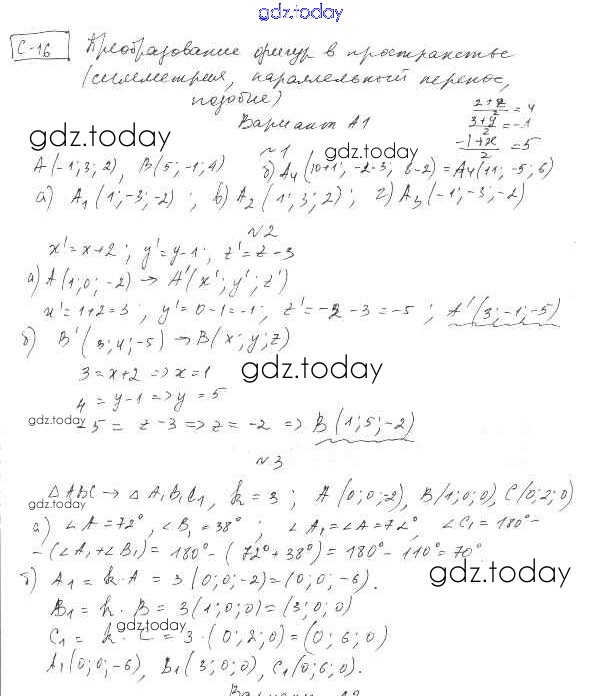 gdz.today
С-16 Преобразование фигур в пространстве
(симметрия, параллельный перенос,
подобие)
Вариант А1
(2+z)/2 = 4
(3+y)/2 = -1
(-1+x)/2 = 5
gdz.today
gdz.today
№1
A(-1;3;2), B(5;-1;4) б) A₄(10+1; -2-3; 8-2) = A₄(11; -5; 6)
а) A₁(1;-3;-2) ; в) A₂(1;3;2) ; г) A₃(-1;-3;-2)
№2
x'=x+2; y'=y-1; z'=z-3
а) A(1;0;-2) → A'(x';y';z')
x'=1+2=3, y'=0-1=-1, z'=-2-3=-5; A'(3;-1;-5)
б) B'(3;4;-5) → B(x;y;z)
3=x+2 => x=1
gdz.today
4=y-1 => y=5
gdz.today
-5= z-3 => z=-2 => B(1;5;-2)
№3
△ABC → △A₁B₁C₁, k=3; A(0;0;-2), B(1;0;0), C(0;2;0)
gdz.today
а) ∠A=72°, ∠B₁=38°; ∠A₁=∠A=72°, ∠C₁=180°-
-(∠A₁+∠B₁)=180°-(72°+38°)=180°-110°=70°
б) A₁=k·A=3(0;0;-2)=(0;0;-6).
gdz.today
B₁=k·B=3(1;0;0)=(3;0;0)
gdz.today
C₁=k·C=3·(0;2;0)=(0;6;0)
A₁(0;0;-6), B₁(3;0;0), C₁(0;6;0).
Вариант А2